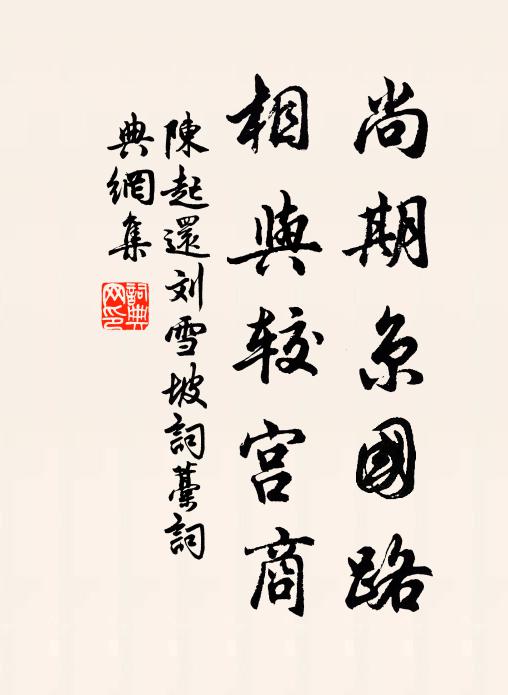 尚期京國路
相與较宫商
陳起還刘雪坡詞藁詞
典網集
詞典网印